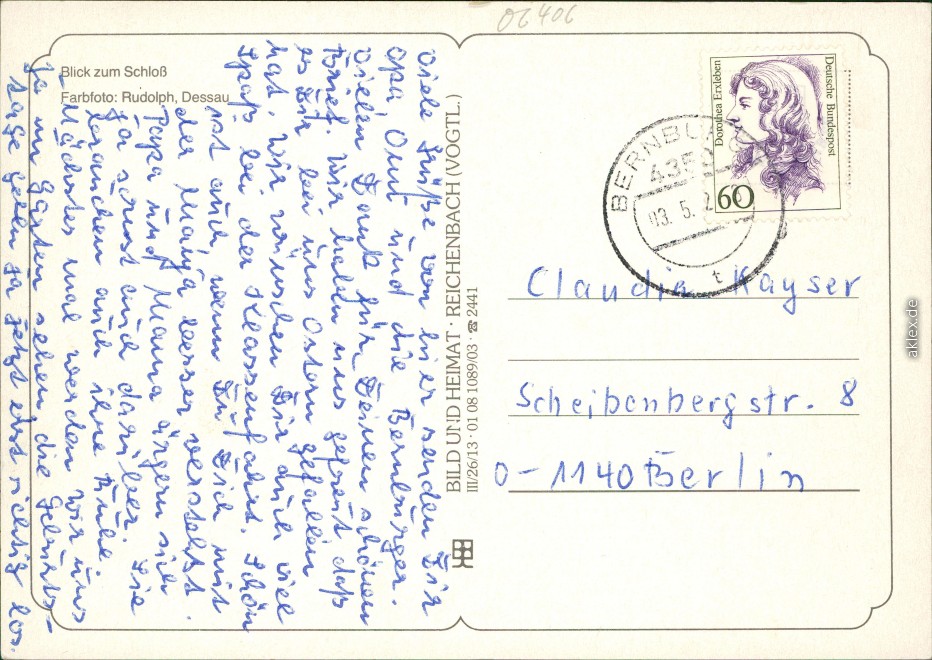 06406
Blick zum Schloß
Farbfoto: Rudolph, Dessau
Viele Grüße von hier senden Dir
Opa, Omi und die Bernburger.
Vielen Dank für Deinen schönen
Brief. Wir haben uns gefreut daß
es Dir bei uns Ostern gefallen
hat. Wir wünschen Dir auch viel
Spaß bei der Klassenfahrt. Schön
ist auch wenn Du Dich mit
der Manja besser verstehst.
Papa und Mama ärgern sich
ja sonst auch darüber. Sie
brauchen auch ihre Ruhe.
Nächstes mal werden wir uns
ja im Garten sehen die Geburts-
tage gehen ja jetzt erst richtig los.
BILD UND HEIMAT · REICHENBACH (VOGTL.)
III/26/13 · 01 08 1089/03 · ☎ 2441
Dorothea Erxleben
Deutsche Bundespost
60
BERNBU
4350
03. 5.
t
Claudia Kayser
Scheibenbergstr. 8
O-1140 Berlin
aklex.de